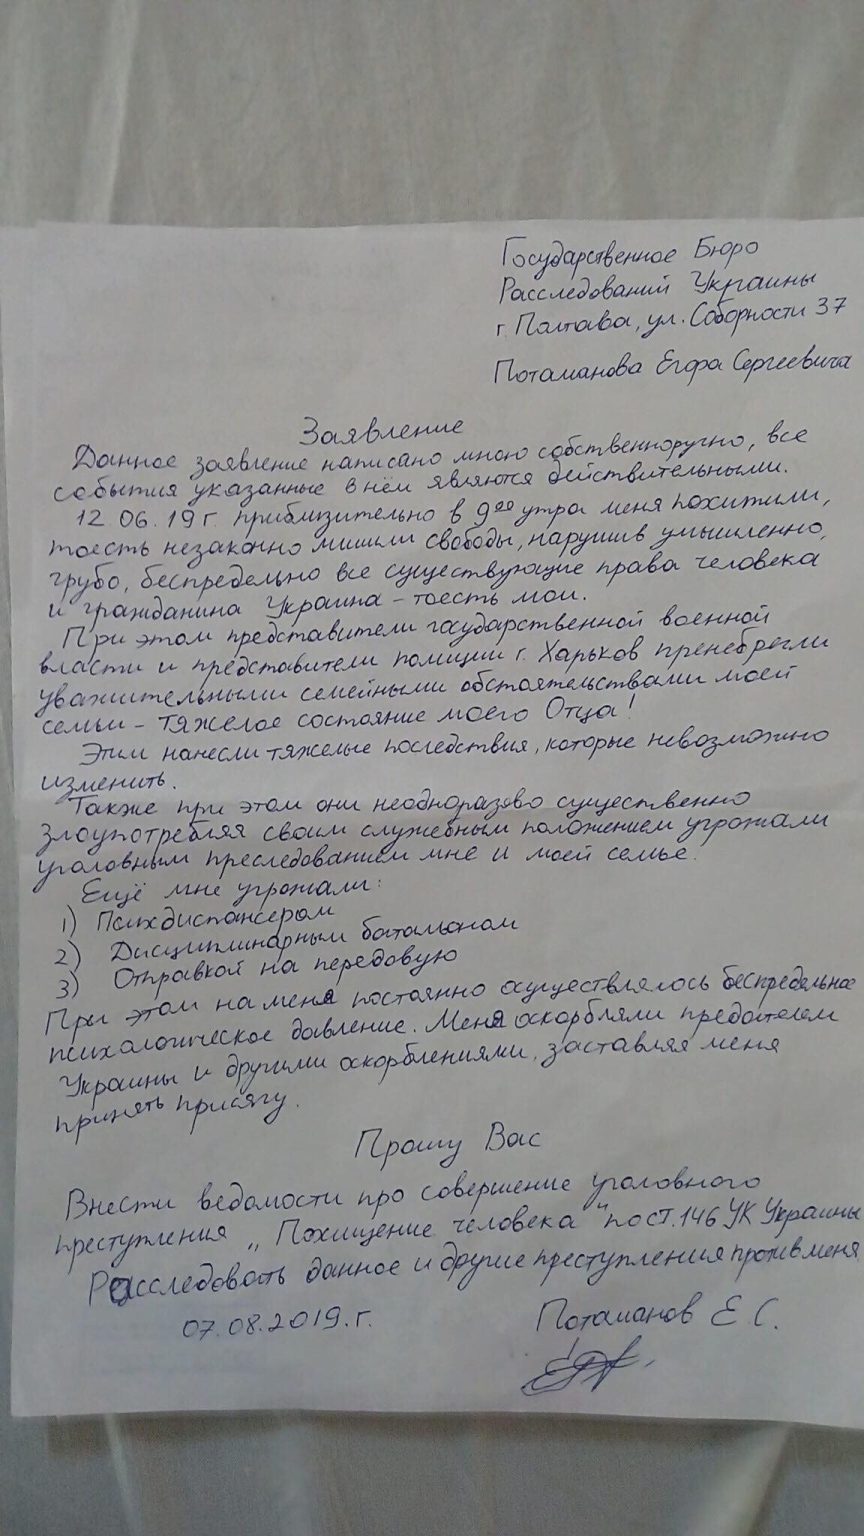 Государственное Бюро
Расследований Украины
г. Полтава, ул. Соборности 37
Потаманова Егора Сергеевича
Заявление
Данное заявление написано мною собственноручно, все
события указанные в нём являются действительными.
12.06.19 г. приблизительно в 9 00 утра меня похитили,
тоесть незаконно лишили свободы, нарушив умышленно,
грубо, беспредельно все существующие права человека
и гражданина Украина - тоесть мои.
При этом представители государственной военной
власти и представители полиции г. Харьков пренебрегли
уважительными семейными обстоятельствами моей
семьи - тяжелое состояние моего Отца!
Этим нанесли тяжелые последствия, которые невозможно
изменить.
Также при этом они неодноразово существенно
злоупотребляя своим служебным положением угрожали
уголовным преследованием мне и моей семье.
Ещё мне угрожали:
1) Психдиспансером
2) Дисциплинарным батальоном
3) Отправкой на передовую
При этом на меня постоянно осуществлялось беспредельное
психологическое давление. Меня оскорбляли предателем
Украины и другими оскорблениями, заставляя меня
принять присягу.
Прошу Вас
Внести ведомости про совершение уголовного
преступления „Похищение человека" по ст. 146 УК Украины
Расследовать данное и другие преступления против меня
07.08.2019 г. Потаманов Е. С.